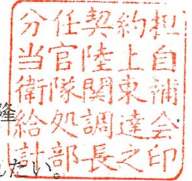 分任契約担
当官陸上自
衛隊関東補
給処調達会
計部長之印
たい。